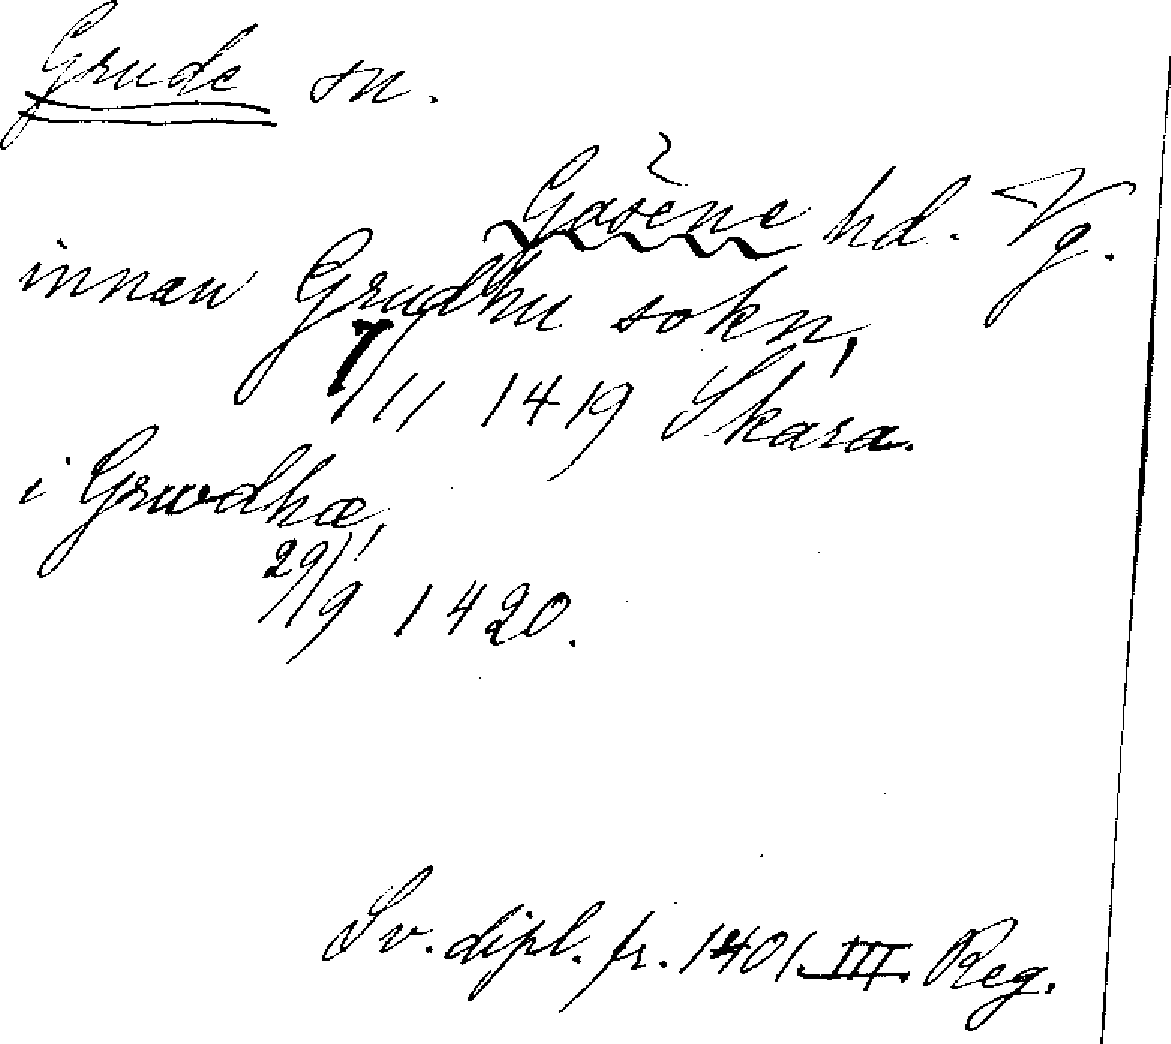 Grude sn.
Gäsene hd. Vg.
innan Grudhu sokn,
7/11 1419 Skara.
i Grwdhæ,
29/9 1420.
Sv. dipl. fr. 1401. III. Reg.